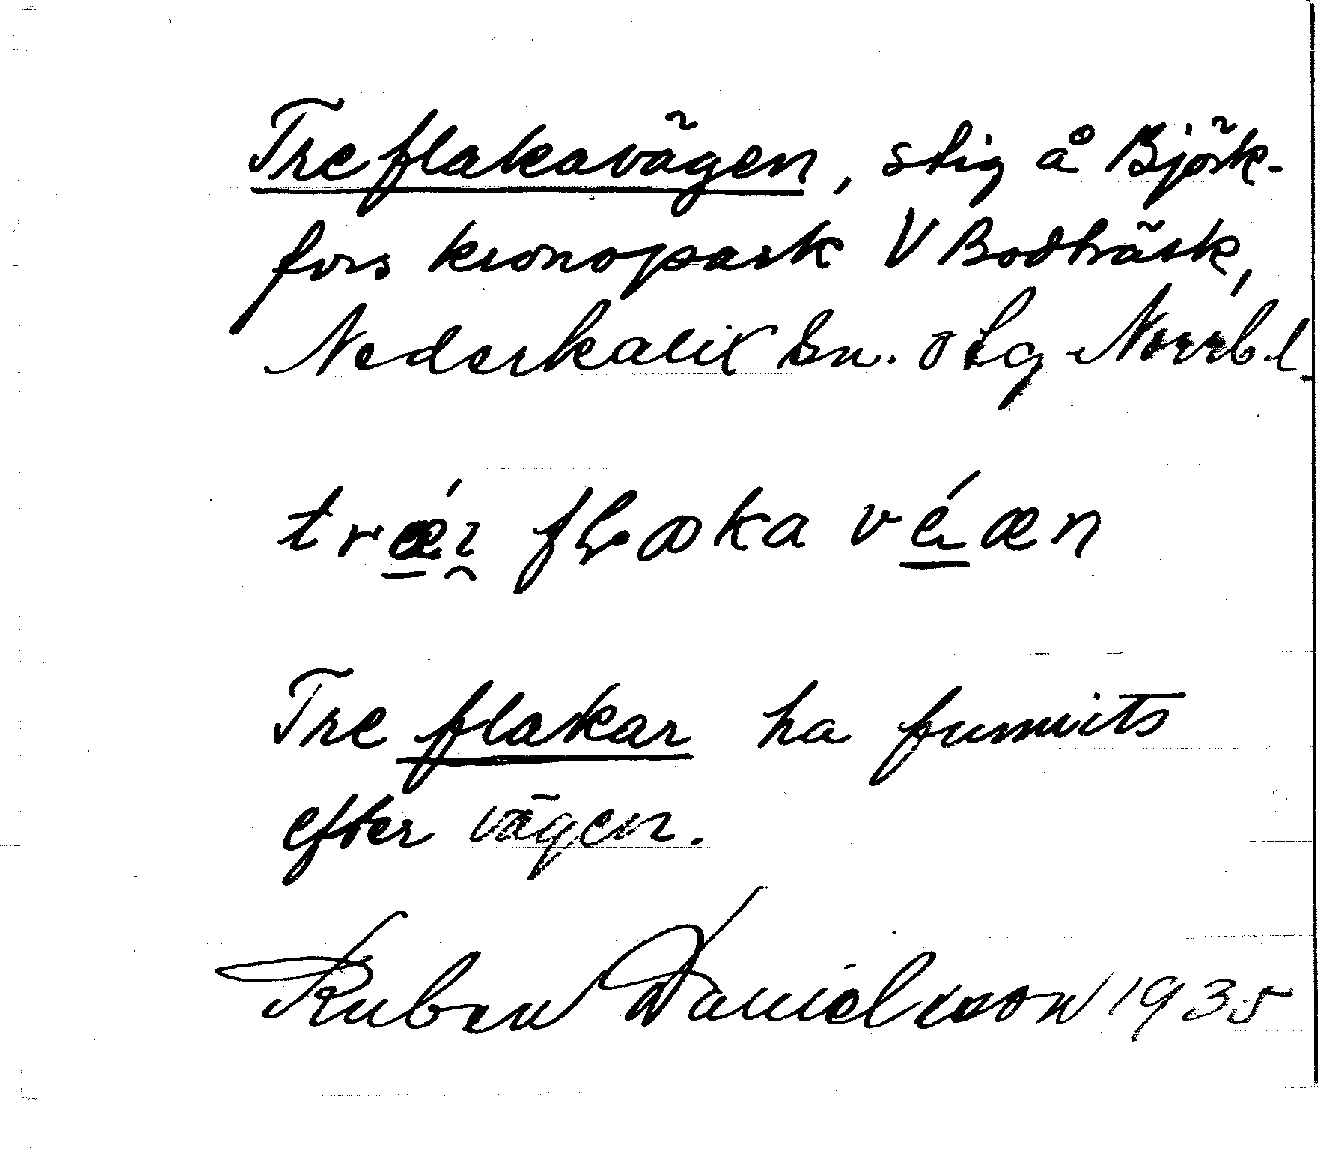 Treflakavägen, stig å Björk-
fors kronopark V Bodträsk,
Nederkalix sn. o tg Norrb.l.
trǽi flaka vé æn
Tre flakar ha funnits
efter vägen.
Ruben Danielsson 1935